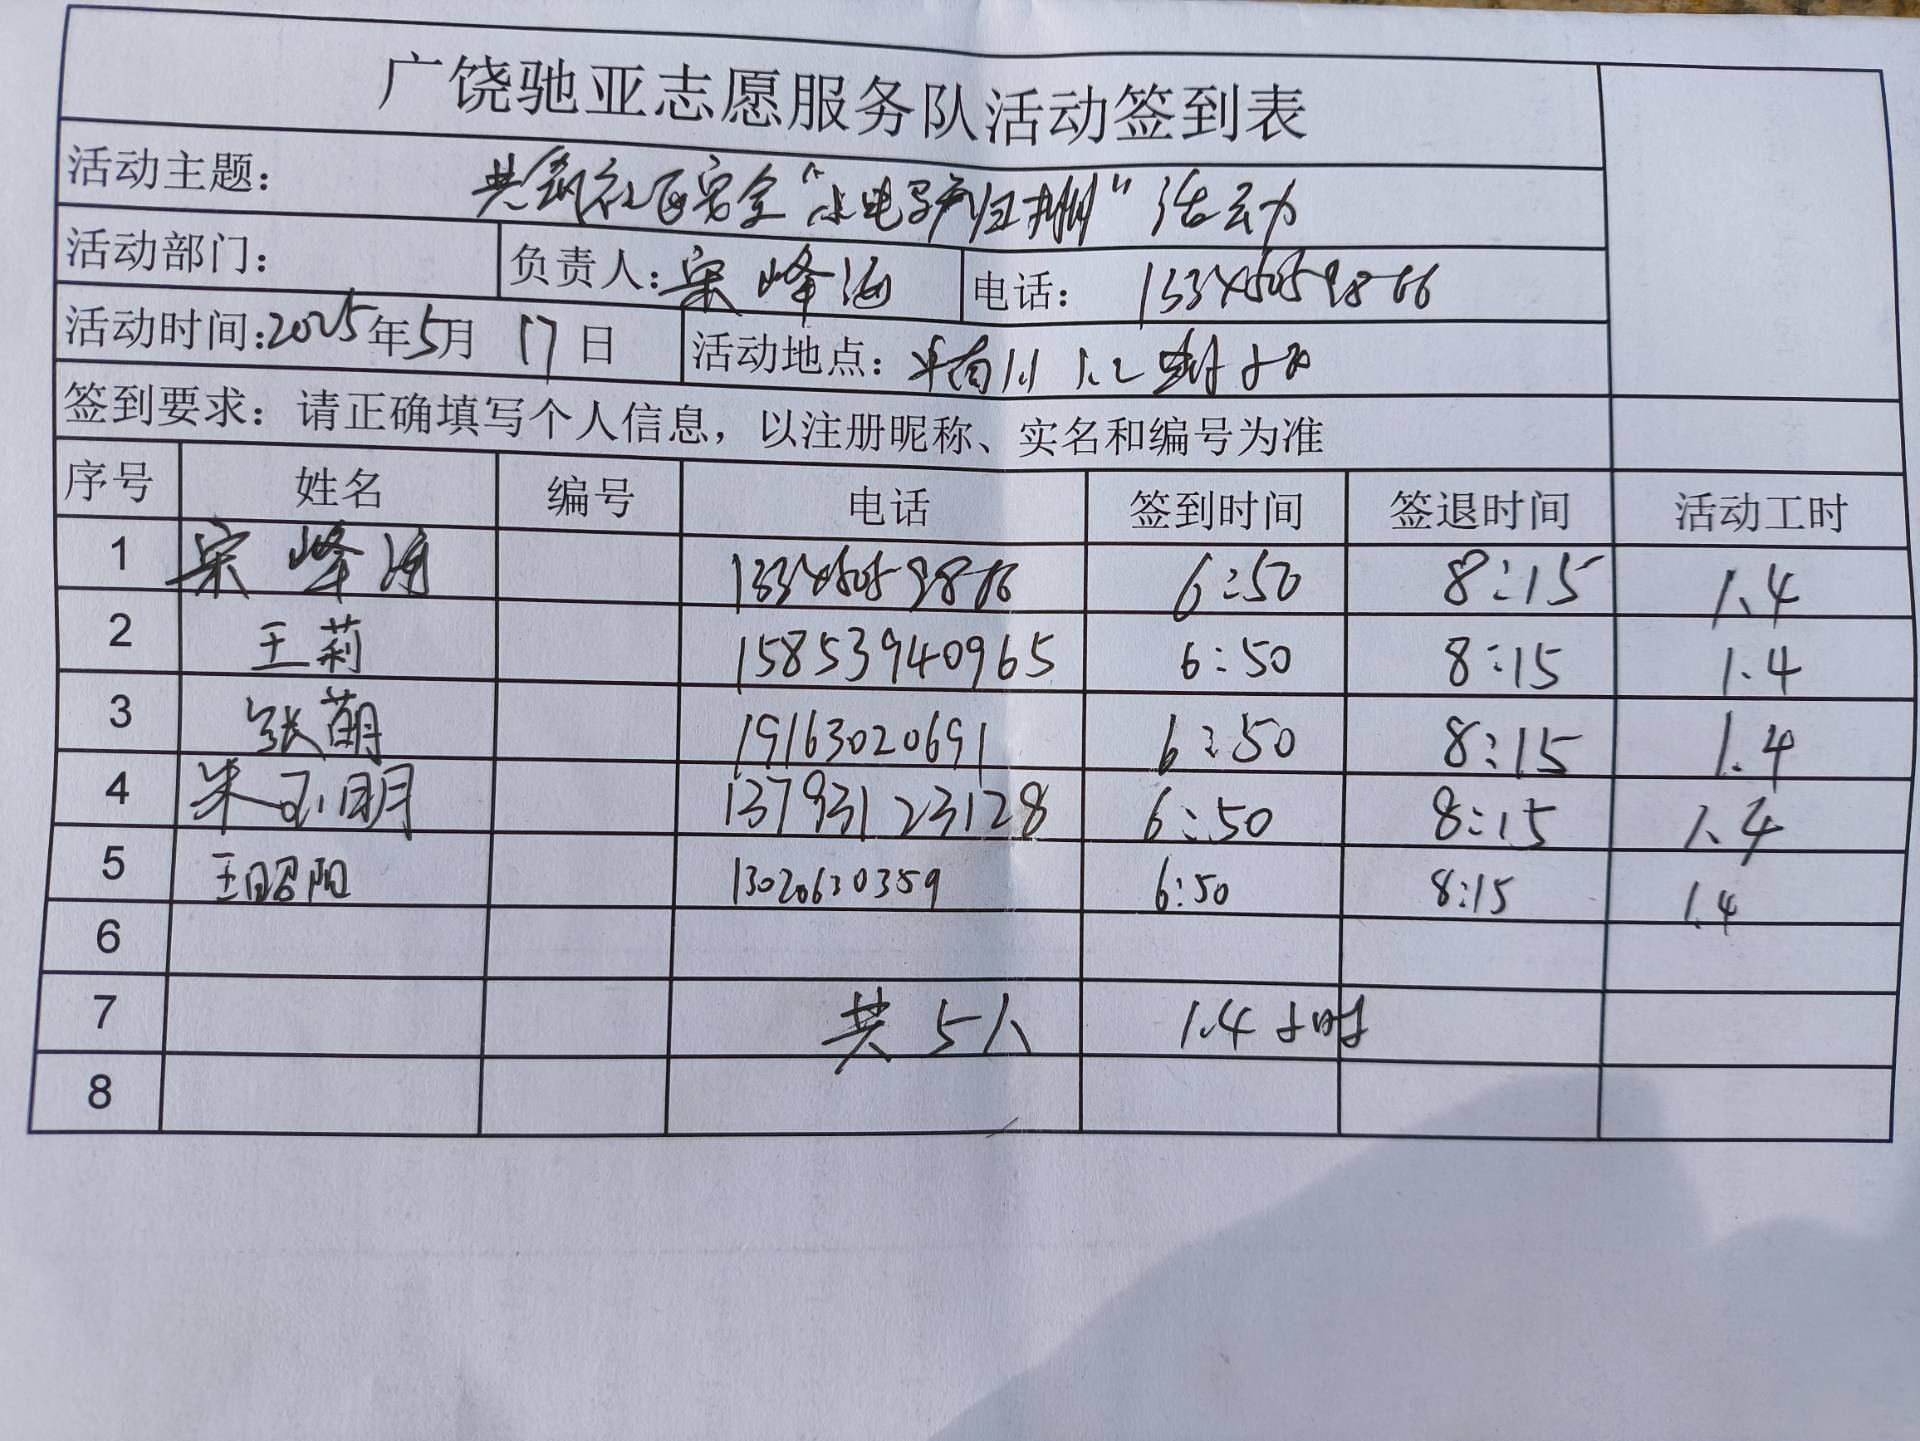 广饶驰亚志愿服务队活动签到表
活动主题: 共创社区安全“小电驴归栅”活动
活动部门: 负责人:宋峰海 电话:
活动时间:2025年5月17日 活动地点:
签到要求:请正确填写个人信息，以注册昵称、实名和编号为准
序号 姓名 编号 电话 签到时间 签退时间 活动工时
1 宋峰海 6:50 8:15 1.4
2 王莉 15853940965 6:50 8:15 1.4
3 张萌 19163020691 6:50 8:15 1.4
4 朱玉明 13793123128 6:50 8:15 1.4
5 王昭阳 13020630359 6:50 8:15 1.4
6
7 共5人 1.4小时
8